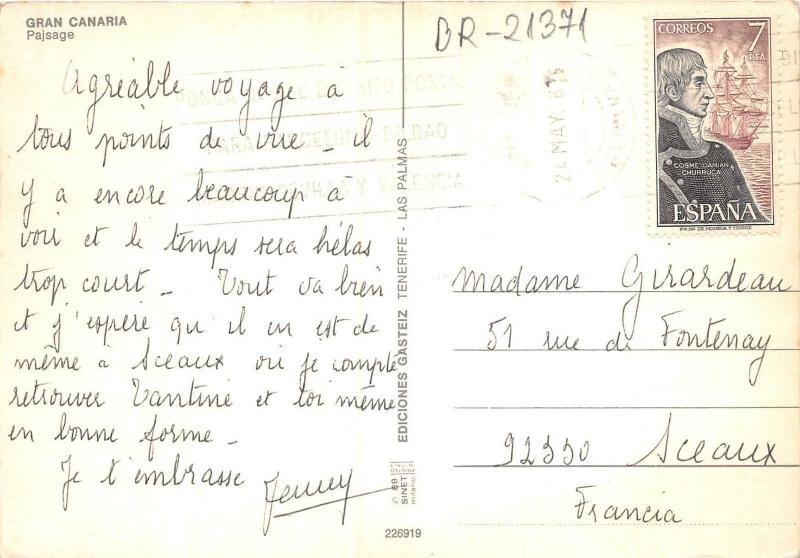 GRAN CANARIA
Pajsage
DR-21371
Agréable voyage à
tous points de vue - il
y a encore beaucoup à
voir et le temps sera hélas
trop court - Tout va bien
et j'espère qu'il en est de
même à Sceaux où je compte
retrouver Tantine et toi même
en bonne forme -
Je t'embrasse Jenny
EDICIONES GASTEIZ TENERIFE - LAS PALMAS
© 69 SINET milano
226919
PONGA DISTRITO POSTAL
PARA BARCELONA-BILBAO
SEVILLA Y VALENCIA
24 MAY. 6
CORREOS 7 PTA
COSME DAMIAN
CHURRUCA
ESPAÑA
Madame Girardeau
51 rue de Fontenay
92330 Sceaux
Francia